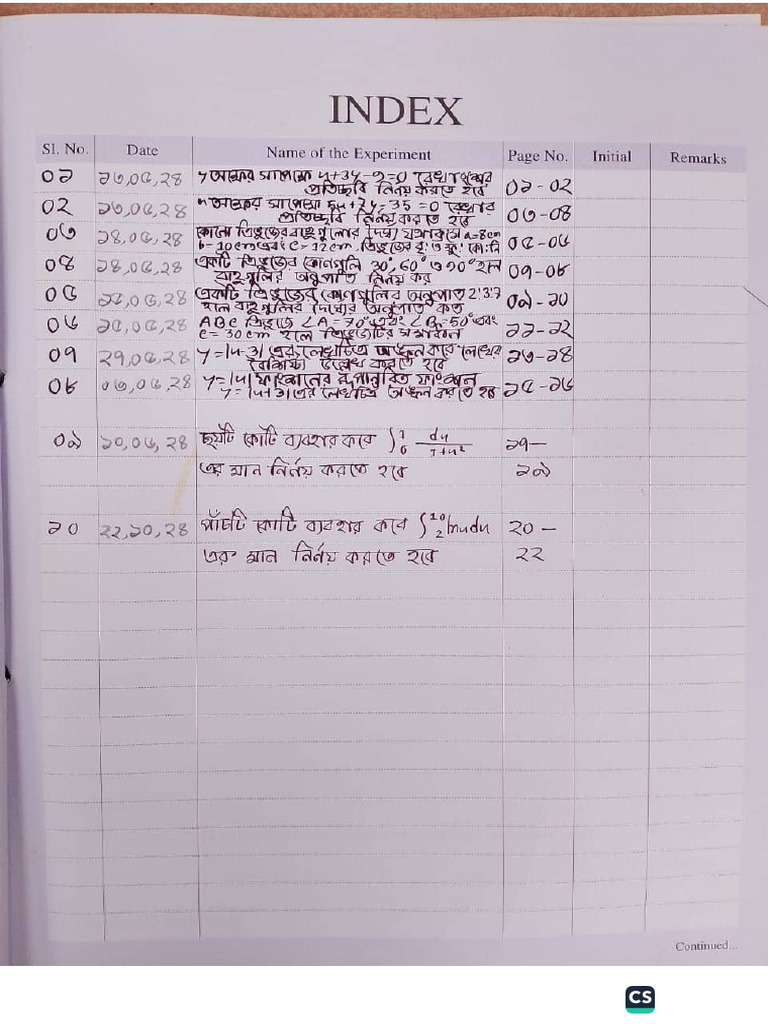 INDEX
Sl. No. Date Name of the Experiment Page No. Initial Remarks
০১ ১৩,০৫,২৪ y অক্ষের সাপেক্ষে x+3y-9=0 রেখাংশের ০১-০২
প্রতিচ্ছবি নির্নয় করতে হবে
০২ ১৩,০৫,২৪ x অক্ষের সাপেক্ষে 5x+2y-35=0 রেখার ০৩-০৪
প্রতিচ্ছবি নির্নয় করতে হবে
০৩ ১৪,০৫,২৪ কোনো ত্রিভুজের বাহুগুলোর দৈর্ঘ্য যথাক্রমে a=8cm ০৫-০৬
b=10cm এবং c=12cm ত্রিভুজের
০৪ ১৪,০৫,২৪ একটি ত্রিভুজের কোনগুলি 30°,60° ও 90° হলে ০৭-০৮
বাহুগুলির অনুপাত নির্নয় কর
০৫ ১৫,০৫,২৪ একটি ত্রিভুজের কোণগুলির অনুপাত 2:3:7 ০৯-১০
হলে বাহুগুলির দৈর্ঘ্যের অনুপাত কত
০৬ ১৫,০৫,২৪ ABC ত্রিভুজে ∠A=70° এবং ∠B=50° এবং ১১-১২
c=30cm হলে ত্রিভুজটির সমাধান
০৭ ২৭,০৫,২৪ y=|x-3| এর লেখচিত্র অঙ্কন করে লেখের ১৩-১৪
বৈশিষ্ট্য উল্লেখ করতে হবে
০৮ ০৩,০৬,২৪ y=|x| ফাংশনের রূপান্তরিত ফাংশন ১৫-১৬
y=|x+3| এর লেখচিত্র অঙ্কন করতে হবে
০৯ ১০,০৬,২৪ ছয়টি কোটি ব্যবহার করে ∫₀¹ dx/1+x² ১৭-
এর মান নির্নয় করতে হবে ১৯
১০ ২২,১০,২৪ পাঁচটি কোটি ব্যবহার করে ∫₂¹⁰ lnxdx ২০-
এর মান নির্নয় করতে হবে ২২
Continued...
CS